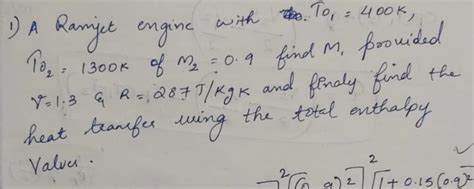 1) A Ramjet engine with To₁ = 400K,
To₂ = 1300K of M₂ = 0.9 find M, provided
γ=1.3 & R = 287 J/Kg K and finaly find the
heat transfer using the total enthalpy
Values.
]² [1+0.15(0.9)²